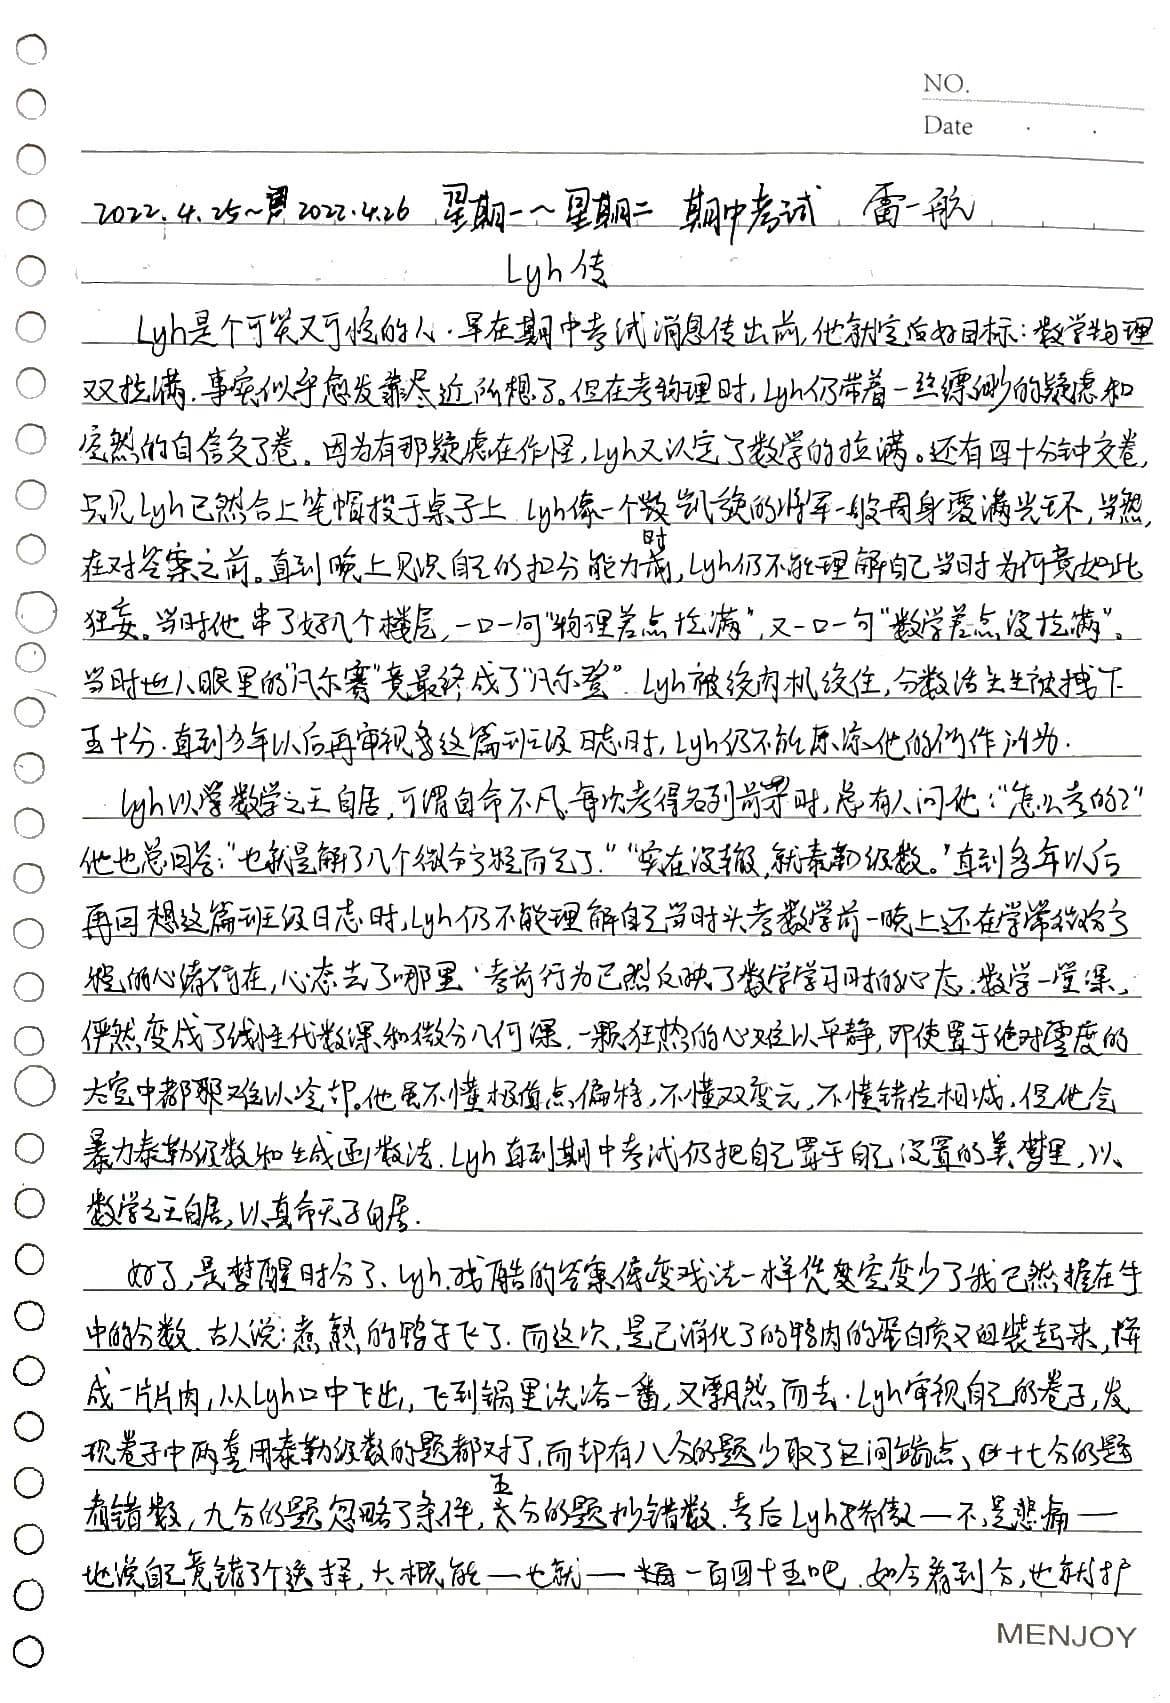 NO.
Date
2022.4.25~2022.4.26 星期一~星期二 期中考试 雷一航
Lyh传
Lyh是个可笑又可怜的人.早在期中考试消息传出前,他就定好目标:数学物理
双拉满.事实似乎愈发靠近所想了。但在考物理时,Lyh仍带着一丝缥缈的疑虑和
突然的自信交了卷。因为有那疑虑在作怪,Lyh又认定了数学的拉满。还有四十分钟交卷,
只见Lyh已然合上笔帽投于桌子上.Lyh像一个凯旋的将军一般周身覆满光环,当然,
在对答案之前。直到晚上见识自己的扣分能力时,Lyh仍不能理解自己当时为何竟如此
狂妄。当时他串了好几个楼层,一口一句“物理差点拉满”,又一口一句“数学差点没拉满”。
当时世人眼里的“凡尔赛”竟最终成了“凡尔登”.Lyh被绞肉机绞住,分数活生生被拽下
五十分.直到多年以后再审视这篇班级日志时,Lyh仍不能原谅他的所作所为.
Lyh以学数学之王自居,可谓自命不凡.每次考得名列前茅时,总有人问他:“怎么考的?”
他也总回答:“也就是解了几个微分方程而已了.”“实在没辙,就泰勒级数。”直到多年以后
再回想这篇班级日志时,Lyh仍不能理解自己当时头考数学前一晚上还在学常微分方
程的心绪何在,心态去了哪里.考前行为已然反映了数学学习时的心态:数学一堂课,
俨然变成了线性代数课和微分几何课.一颗狂热的心难以平静,即使置于绝对零度的
太空中都难以冷却.他虽不懂极值点偏移,不懂双变元,不懂错位相减,但他会
暴力泰勒级数和生成函数法.Lyh直到期中考试仍把自己置于自己设置的美梦里,以
数学之王自居,以真命天子自居.
好了,是梦醒时分了、Lyh.残酷的答案像变戏法一样凭空变少了我已然握在手
中的分数.古人说:煮熟的鸭子飞了.而这次,是已消化了的鸭肉的蛋白质又组装起来,拼
成一片片肉,从Lyh口中飞出,飞到锅里洗浴一番,又飘然而去.Lyh审视自己的卷子,发
现卷子中两道用泰勒级数的题都对了,而却有八分的题少取了区间端点、十七分的题
看错数,九分的题忽略了条件,五分的题抄错数.考后Lyh骄傲—不,是悲痛—
地说自己竟错了个选择,大概能—也就—一百四十五吧.如今看到分,也就护
MENJOY